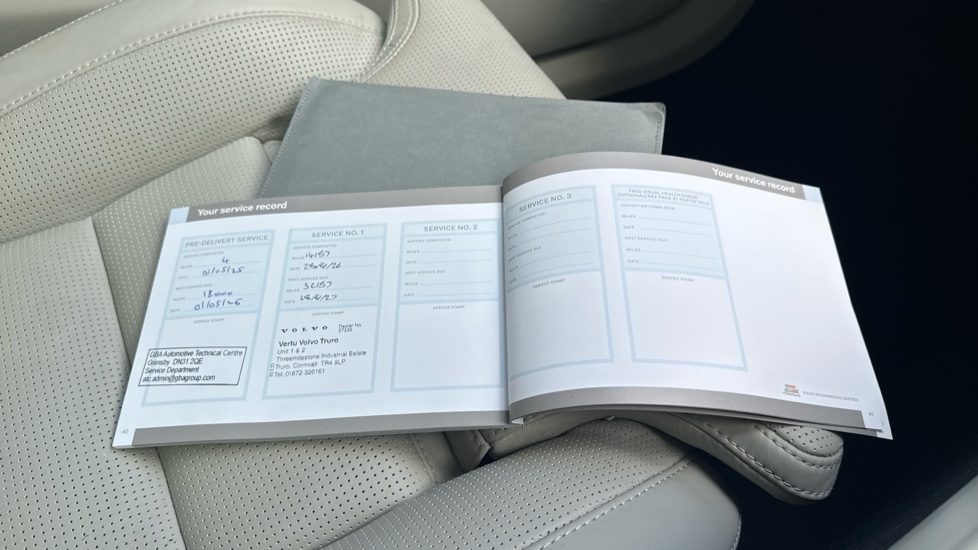 Your service record
PRE-DELIVERY SERVICE
SERVICE COMPLETED
MILES 4
DATE 01/05/25
NEXT SERVICE DUE
MILES 18000
DATE 01/05/26
SERVICE STAMP
GBA Automotive Technical Centre
Grimsby DN31 2QE
Service Department
atc.admin@gbagroup.com
40
SERVICE NO. 1
SERVICE COMPLETED
MILES 14157
DATE
NEXT SERVICE DUE
MILES 32157
DATE
SERVICE STAMP
VOLVO Dealer No.
Vertu Volvo Truro
Unit 1 & 2
Threemilestone Industrial Estate
Truro, Cornwall TR4 9LP
Tel: 01872 326161
SERVICE NO. 2
SERVICE COMPLETED
MILES
DATE
NEXT SERVICE DUE
MILES
DATE
SERVICE STAMP
Your service record
SERVICE NO. 3
MILES
DATE
SERVICE STAMP
FREE VISUAL HEALTH CHECK
(OPTIONAL) SEE PAGE 37 FOR DETAILS
INSPECTION COMPLETED
MILES
DATE
NEXT SERVICE DUE
MILES
DATE
SERVICE STAMP
VOLVO RECOMMENDS CASTROL
41